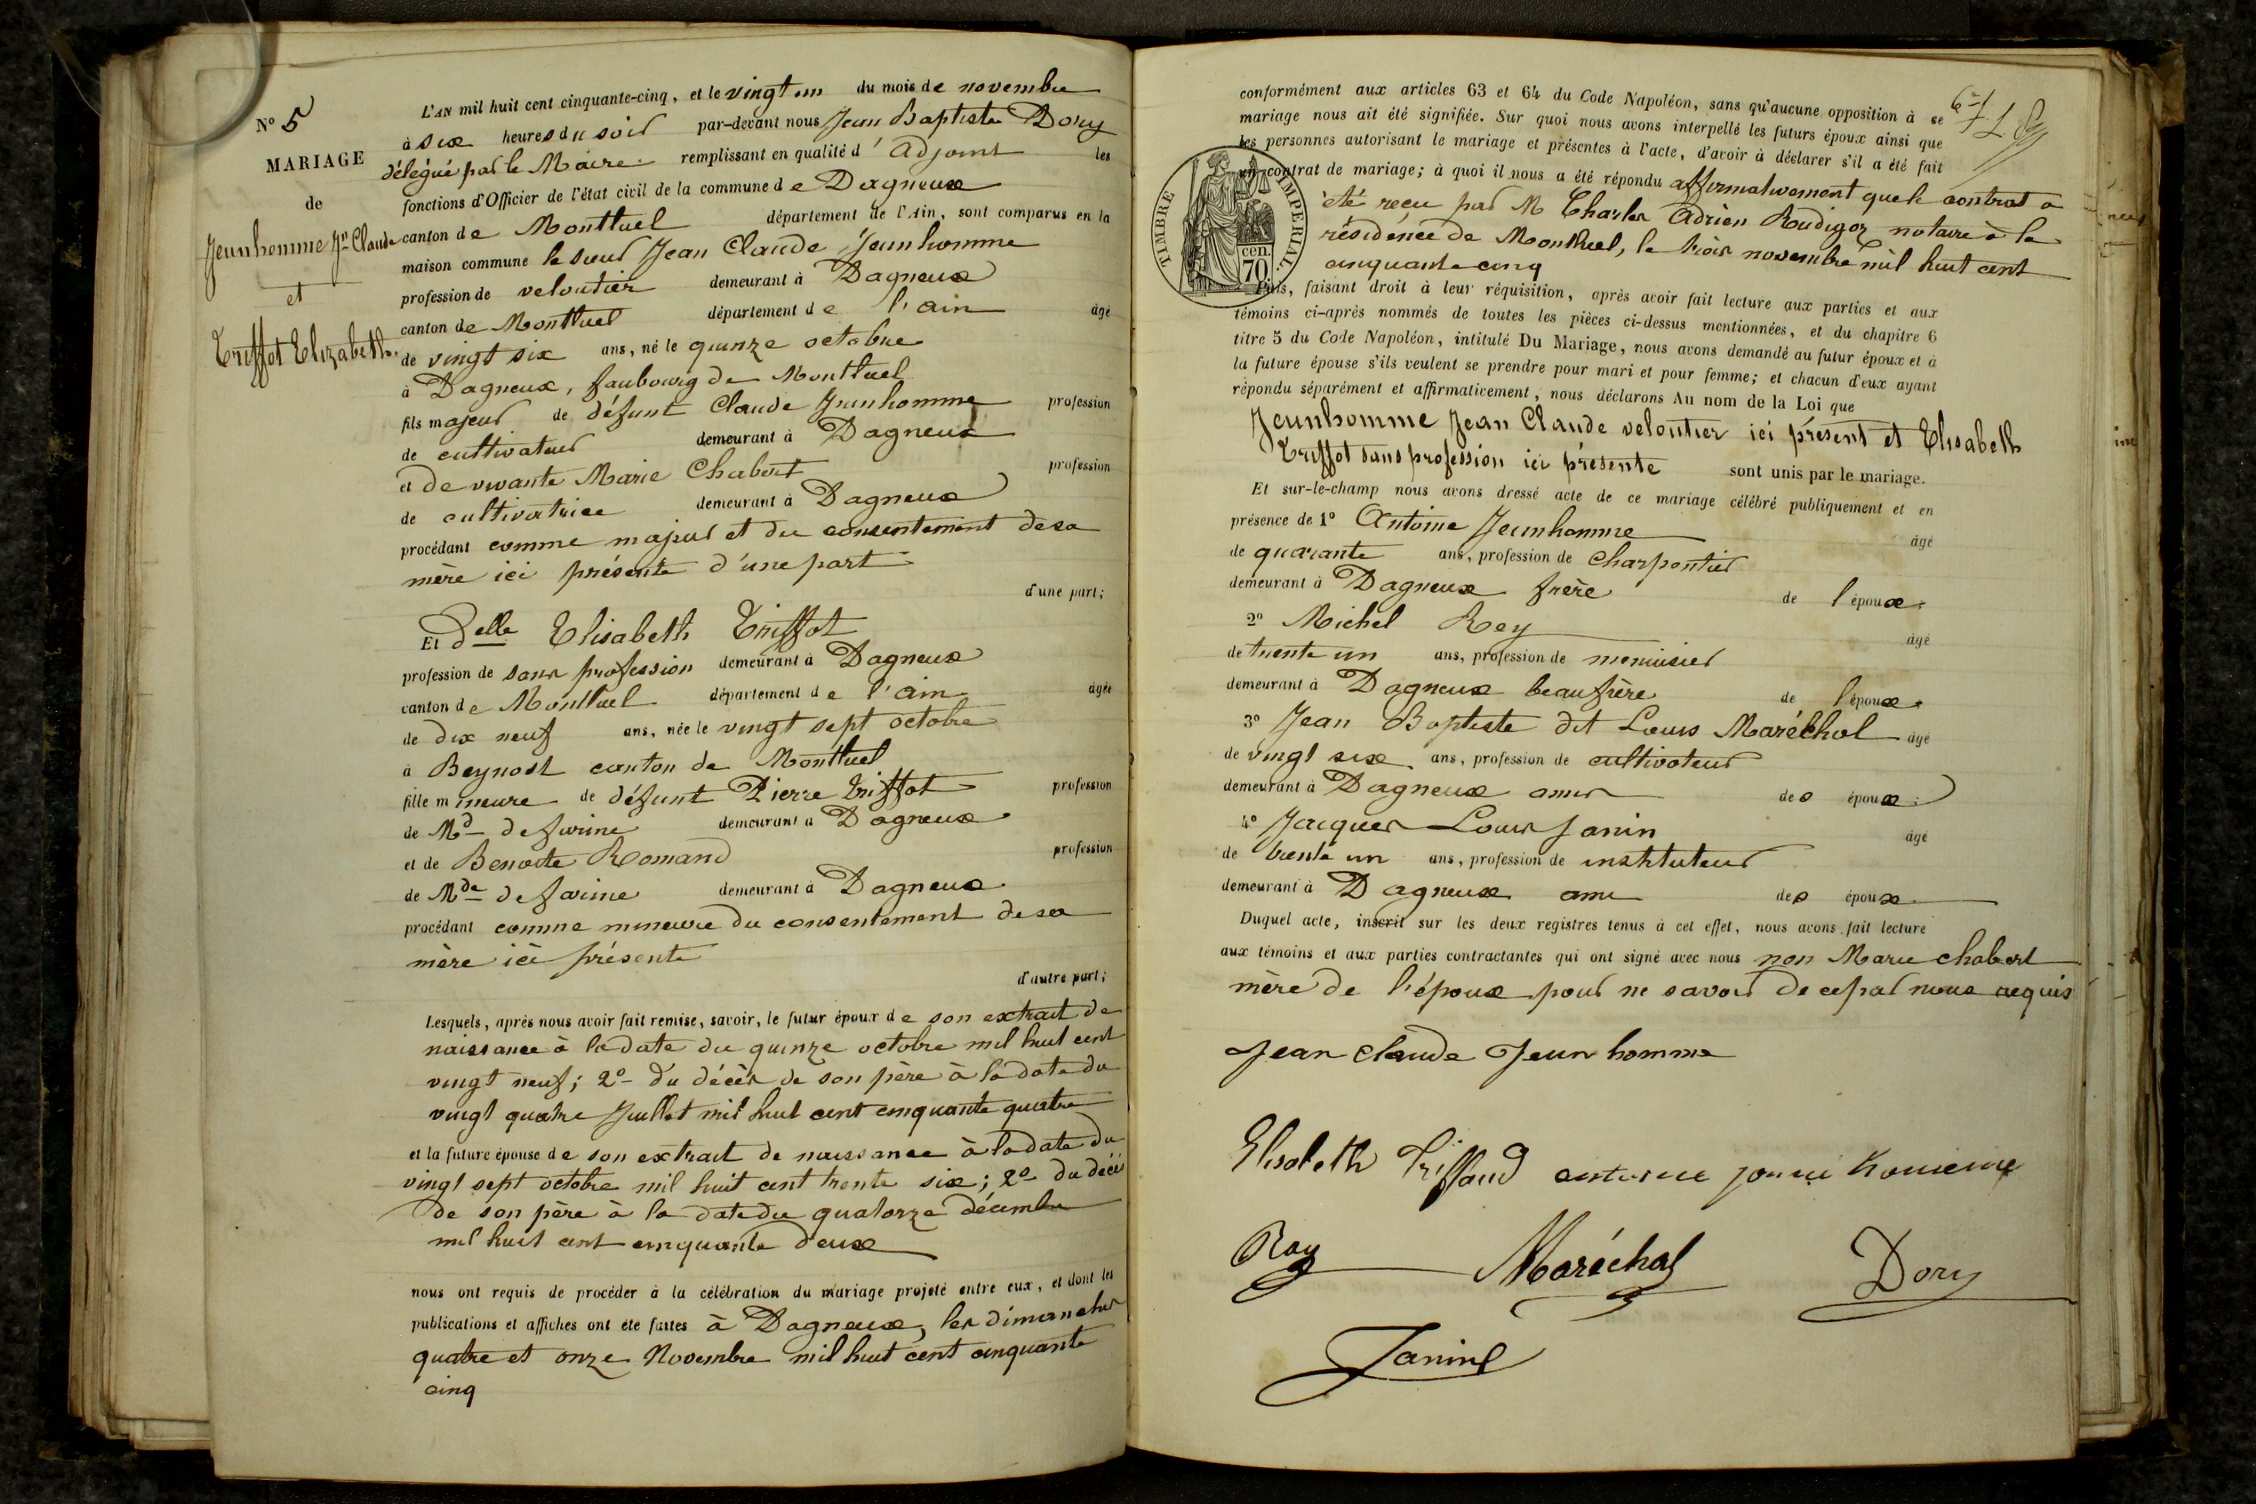 N° 5
MARIAGE
de
Jeunhomme Jn Claude
et
Triffot Elizabeth.
L'AN mil huit cent cinquante-cinq, et le vingt un du mois de novembre
à six heures du soir par-devant nous Jean Baptiste Dory
délégué par le Maire remplissant en qualité d'Adjoint les
fonctions d'Officier de l'état civil de la commune de Dagneux
canton de Montluel département de l'Ain, sont comparus en la
maison commune le sieur Jean Claude Jeunhomme
profession de veloutier demeurant à Dagneux
canton de Montluel département de l'ain âgé
de vingt six ans, né le quinze octobre
à Dagneux, faubourg de Montluel
fils majeur de défunt Claude Jeunhomme profession
de cultivateur demeurant à Dagneux
et de vivante Marie Chabert profession
de cultivatrice demeurant à Dagneux
procédant comme majeur et du consentement de sa
mère ici présente d'une part
d'une part;
Et Delle Elisabeth Triffot
profession de sans profession demeurant à Dagneux
canton de Montluel département de l'ain âgée
de dix neuf ans, née le vingt sept octobre
à Beynost canton de Montluel
fille mineure de défunt Pierre Triffot profession
de Md de farine demeurant à Dagneux
et de Benoite Romand profession
de Mde de farine demeurant à Dagneux
procédant comme mineure du consentement de sa
mère ici présente
d'autre part;
Lesquels, après nous avoir fait remise, savoir, le futur époux de son extrait de
naissance à la date du quinze octobre mil huit cent
vingt neuf; 2° du décès de son père à la date du
vingt quatre Juillet mil huit cent cinquante quatre
et la future épouse de son extrait de naissance à la date du
vingt sept octobre mil huit cent trente six; 2° du décès
de son père à la date du quatorze décembre
mil huit cent cinquante deux
nous ont requis de procéder à la célébration du mariage projeté entre eux, et dont les
publications et affiches ont été faites à Dagneux, les dimanches
quatre et onze Novembre mil huit cent cinquante
cinq
conformément aux articles 63 et 64 du Code Napoléon, sans qu'aucune opposition à se
mariage nous ait été signifiée. Sur quoi nous avons interpellé les futurs époux ainsi que
les personnes autorisant le mariage et présentes à l'acte, d'avoir à déclarer s'il a été fait
un contrat de mariage; à quoi il nous a été répondu affirmativement que le contrat a
été reçu par M Charles Adrien Rudigoz notaire à la
résidence de Montluel, le trois novembre mil huit cent
cinquante cinq
TIMBRE IMPERIAL.
cen.
70
Puis, faisant droit à leur réquisition, après avoir fait lecture aux parties et aux
témoins ci-après nommés de toutes les pièces ci-dessus mentionnées, et du chapitre 6
titre 5 du Code Napoléon, intitulé Du Mariage, nous avons demandé au futur époux et à
la future épouse s'ils veulent se prendre pour mari et pour femme; et chacun d'eux ayant
répondu séparément et affirmativement, nous déclarons Au nom de la Loi que
Jeunhomme Jean Claude veloutier ici présent et Elisabeth
Triffot sans profession ici présente sont unis par le mariage.
Et sur-le-champ nous avons dressé acte de ce mariage célébré publiquement et en
présence de 1° Antoine Jeunhomme âgé
de quarante ans, profession de charpentier
demeurant à Dagneux frère de l'époux.
2° Michel Rey âgé
de trente un ans, profession de menuisier
demeurant à Dagneux beaufrère de l'époux.
3° Jean Baptiste dit Louis Maréchal âgé
de vingt six ans, profession de cultivateur
demeurant à Dagneux amis des époux.
4° Jacques Louis Janin âgé
de trente un ans, profession de instituteur
demeurant à Dagneux ami des époux
Duquel acte, inscrit sur les deux registres tenus à cet effet, nous avons fait lecture
aux témoins et aux parties contractantes qui ont signé avec nous non Marie chabert
mère de l'époux pour ne savoir de ce par nous requis
Jean claude Jeunhomme
Elisabeth Triffaud
Rey Maréchal Dory
Janin